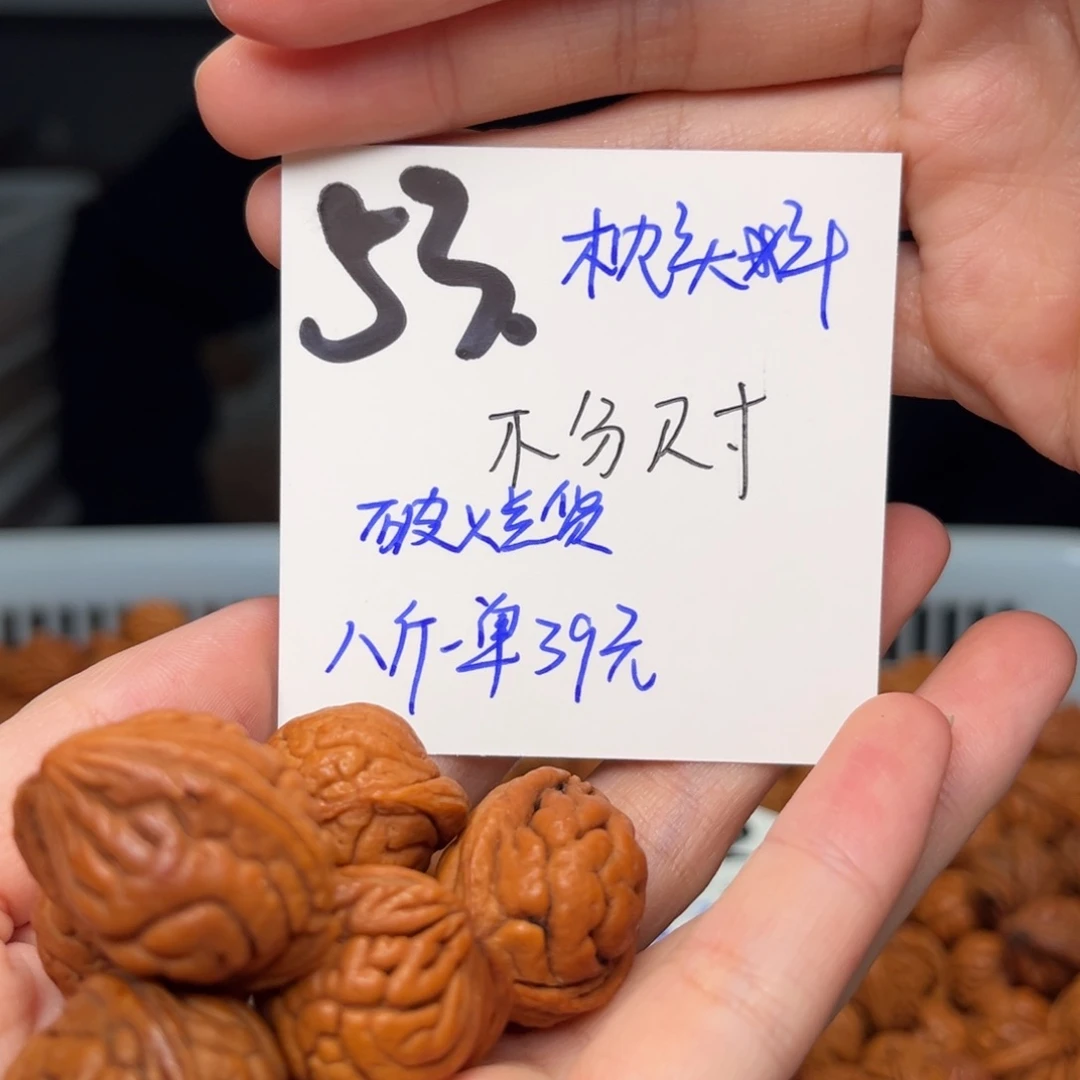 53.
枕头料
不分尺寸
破烂货
八斤一单39元